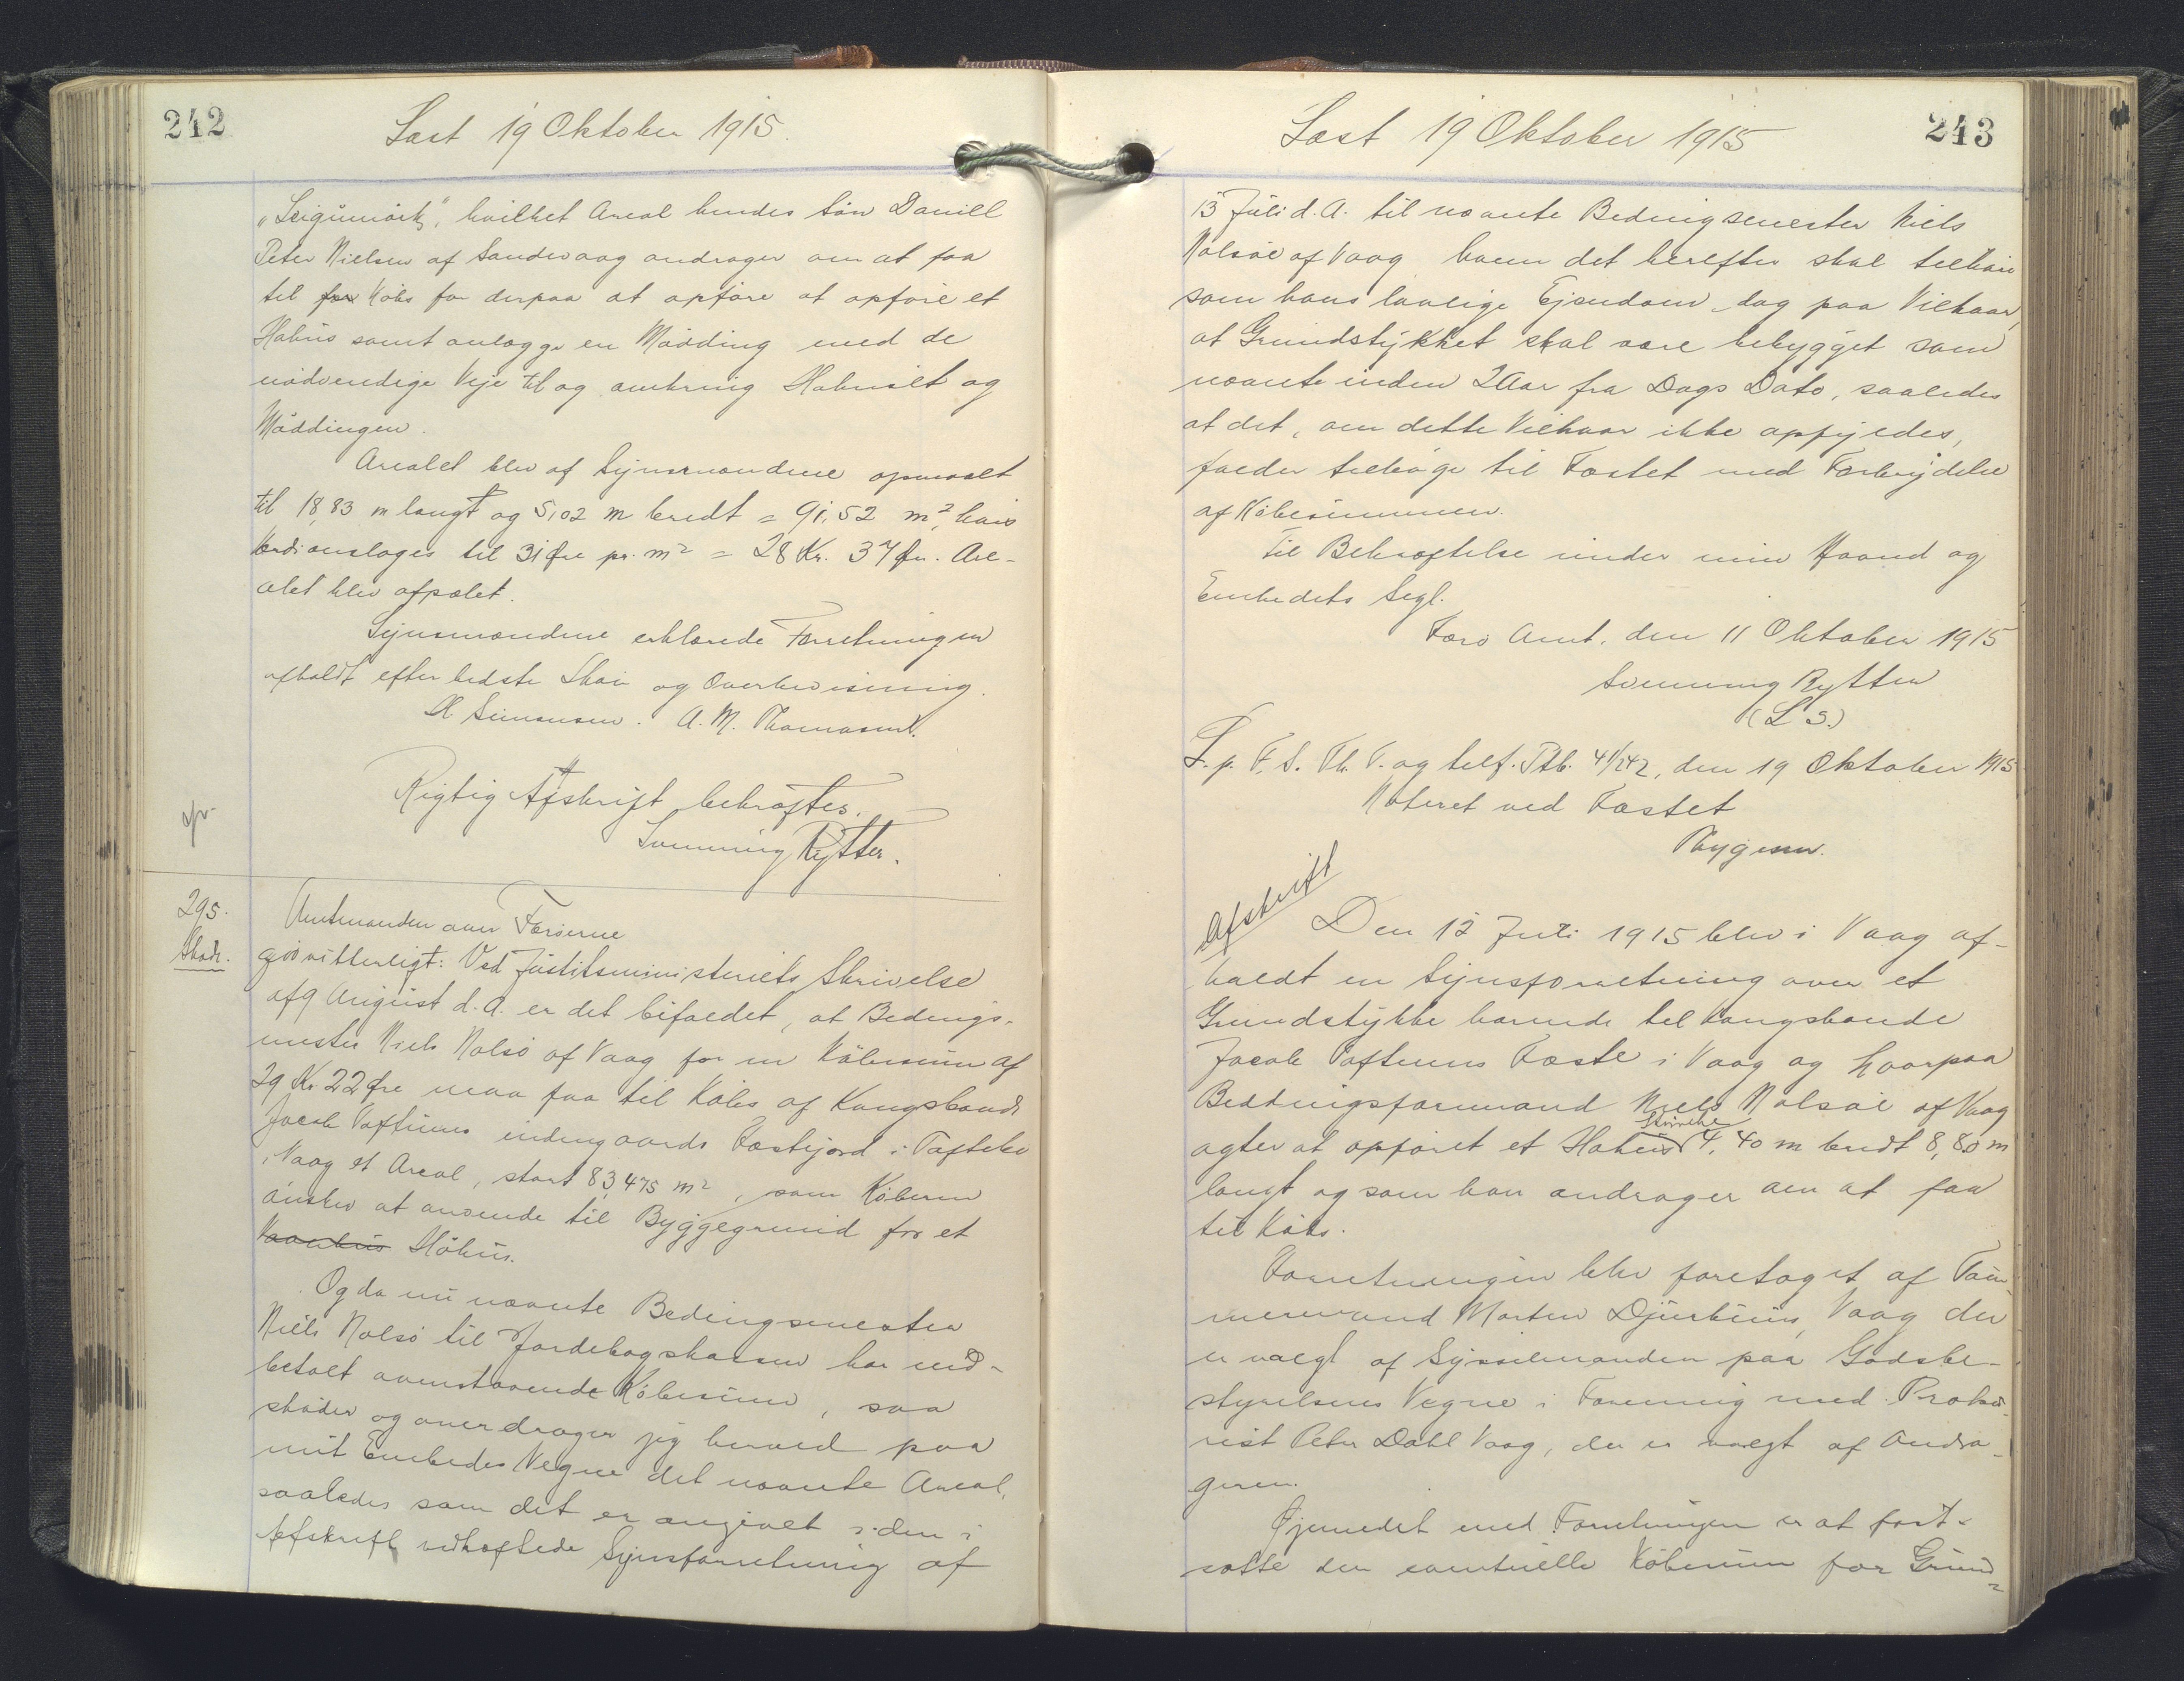 242
Læst 19 Oktober 1915.
"Leigumørk", hvilket Areal hendes Søn Daniell
Peter Nielsen af Sandevaag andrager om at faa
til for Købs for derpaa at opføre at opføre et
Høhus samt anlægge en Mødding med de
nødvendige Veje til og omkring Høhuset og
Møddingen.
Arealet blev af Synsmændene opmaalt
til 18,83 m langt og 5,02 m bredt = 91,52 m², hvis
Værdi ansloges til 31 Øre pr. m² = 28 Kr. 37 Øre. Are-
alet blev afpælet.
Synsmændene erklærede Forretningen
afholdt efter bedste Skøn og Overbevisning.
H. Simonsen. A. M. Thomasen.
Rigtig Afskrift bekræftes.
Svenning Rytter.
295.
Skøde.
Amtmanden over Færøerne
gør vitterligt: Ved Justitsministeriets Skrivelse
af 9 August d. A. er det bifaldet, at Bedings-
mester Niels Nolsø af Vaag for en Købesum af
29 Kr. 22 Øre maa faa til Købs af Kongsbonde
Jacob Vaftuns indengaards Fæstejord i Tøftebø
i Vaag et Areal, stort 83,475 m², som Køberen
ønsker at anvende til Byggegrund for et
Vaanhus Høhus.
Og da nu nævnte Bedingsmester
Niels Nolsø til Jordebogskassen har ind-
betalt ovenstaaende Købesum, saa
skøder og overdrager jeg herved paa
mit Embedes Vegne det nævnte Areal,
saaledes som det er angivet i den i
Afskrift vedhæftede Synsforretning af
243
Læst 19 Oktober 1915
13 Juli d. A. til nævnte Bedingsmester Niels
Nolsøe af Vaag, ham det herefter skal tilhøre
som hans lovlige Ejendom, dog paa Vilkaar,
at Grundstykket skal være bebygget som
nævnte inden 2 Aar fra Dags Dato, saaledes
at det, om dette Vilkaar ikke opfyldes,
falder tilbage til Fæstet med Fortrydelse
af Købesummen.
Til Bekræftelse under min Haand og
Embedets Segl.
Færø Amt, den 11 Oktober 1915
Svenning Rytter
(L S.)
L. p. F. S. Th. T. og tilf. Ptb. 41/242, den 19 Oktober 1915
Noteret ved Fæstet
Thygesen.
Afskrift
Den 12 Juli 1915 blev i Vaag af-
holdt en Synsforretning over et
Grundstykke hørende til Kongsbonde
Jacob Vaftuns Fæste i Vaag og hvorpaa
Beddingsformand Niels Nolsøe af Vaag
agter at opføret et Høhus 4,40 m bredt 8,80 m
langt og som han andrager om at faa
til Købs.
Forretningen blev foretaget af Tøm-
mermand Morten Djurhuus, Vaag der
er valgt af Sysselmanden paa Godsbe-
styrelsens Vegne i Forening med Proku-
rist Peter Dahl Vaag, der er valgt af Andra-
geren.
Øjemedet med Forretningen er at fast-
sætte den eventuelle Købesum for Grund-